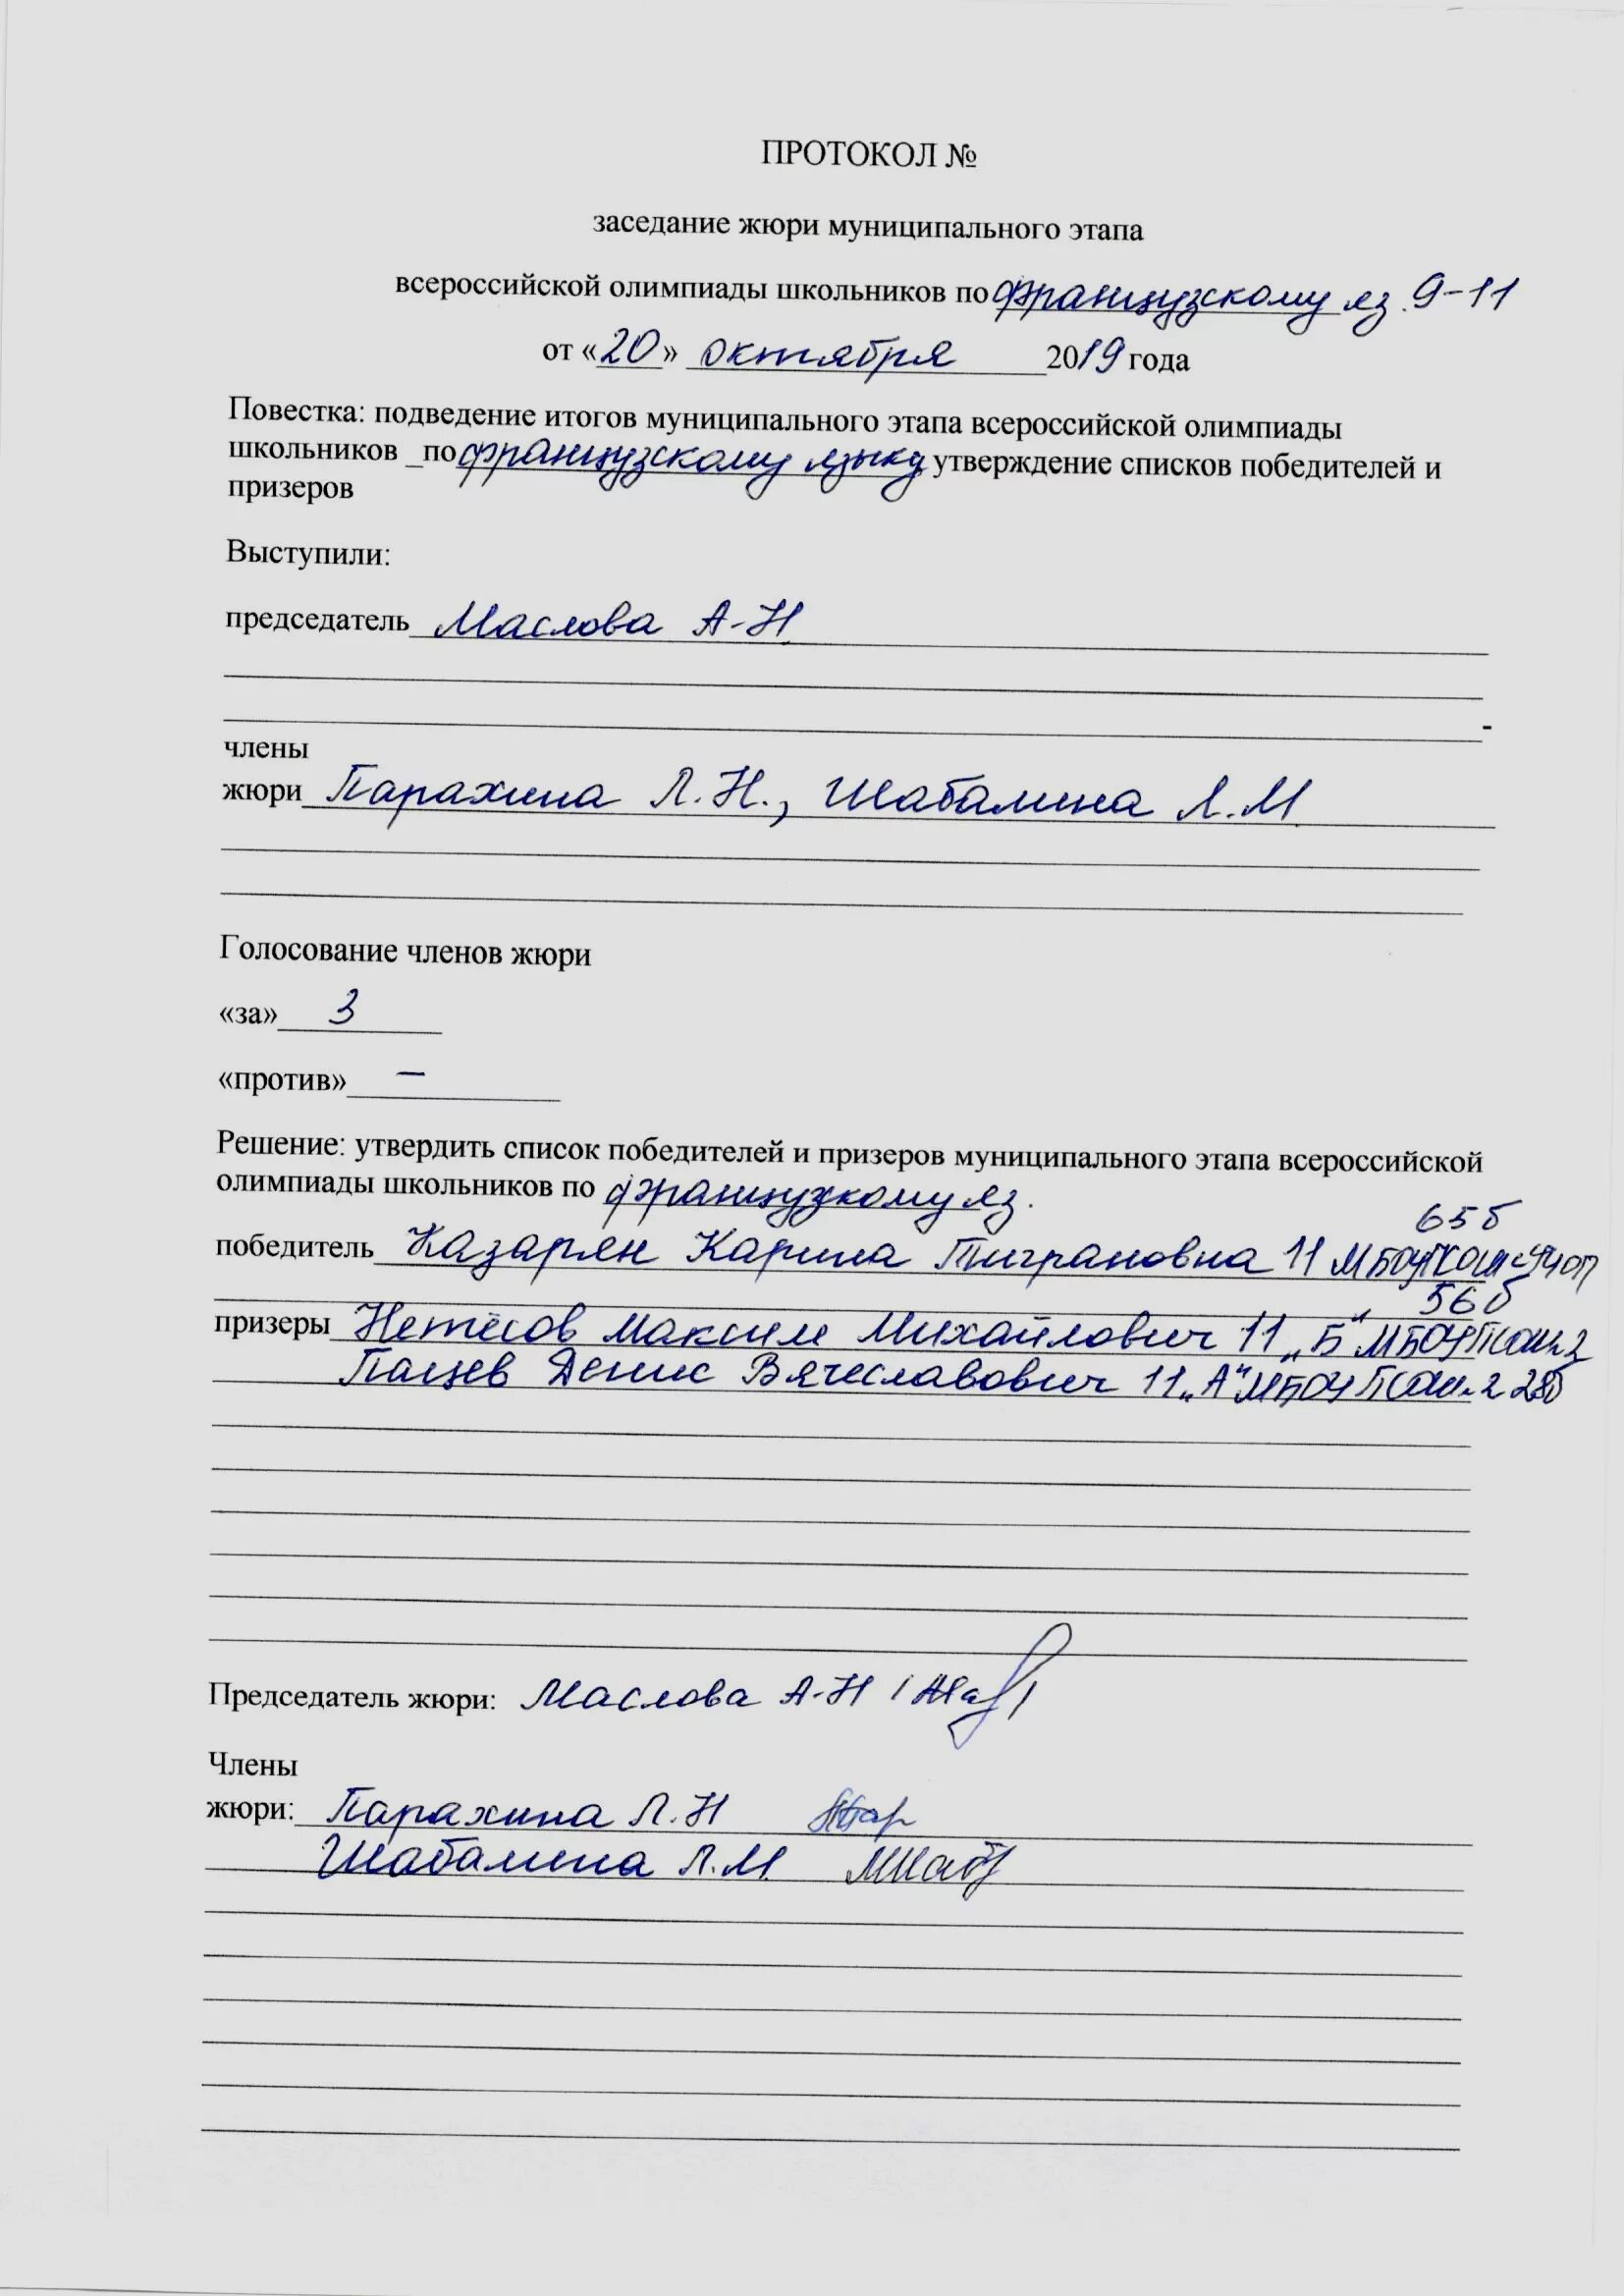 ПРОТОКОЛ №
заседание жюри муниципального этапа
всероссийской олимпиады школьников по французскому яз. 9-11
от «20» октября 2019 года
Повестка: подведение итогов муниципального этапа всероссийской олимпиады
школьников _по французскому языку утверждение списков победителей и
призеров
Выступили:
председатель Маслова А-Н
члены
жюри Парахина Л.Н., Шабалина Л.М
Голосование членов жюри
«за» 3
«против» –
Решение: утвердить список победителей и призеров муниципального этапа всероссийской
олимпиады школьников по французкому яз.
65б
победитель Казарян Карина Тиграновна 11
56б
призеры Нетёсов Максим Михайлович 11 „Б" МБОУ ПСОШ 2
Пащев Денис Вячеславович 11 „А" МБОУ ПСОШ 2 28б
Председатель жюри: Маслова А-Н
Члены
жюри: Парахина Л.Н
Шабалина Л.М.